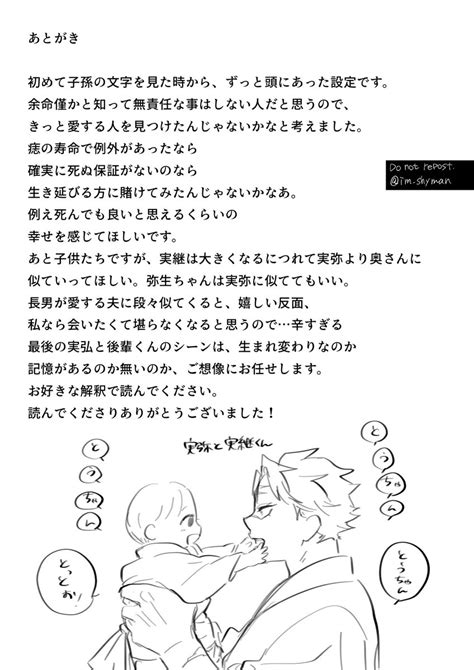 あとがき
初めて子孫の文字を見た時から、ずっと頭にあった設定です。
余命僅かと知って無責任な事はしない人だと思うので、
きっと愛する人を見つけたんじゃないかなと考えました。
痣の寿命で例外があったなら
確実に死ぬ保証がないのなら
生き延びる方に賭けてみたんじゃないかなあ。
例え死んでも良いと思えるくらいの
幸せを感じてほしいです。
あと子供たちですが、実継は大きくなるにつれて実弥より奥さんに
似ていってほしい。弥生ちゃんは実弥に似ててもいい。
長男が愛する夫に段々似てくると、嬉しい反面、
私なら会いたくて堪らなくなると思うので…辛すぎる
最後の実弘と後輩くんのシーンは、生まれ変わりなのか
記憶があるのか無いのか、ご想像にお任せします。
お好きな解釈で読んでください。
読んでくださりありがとうございました！
Do not repost.
@im.shyman
実弥と実継くん
とうちゃん
とうちゃん
とうちゃん
とっとか!